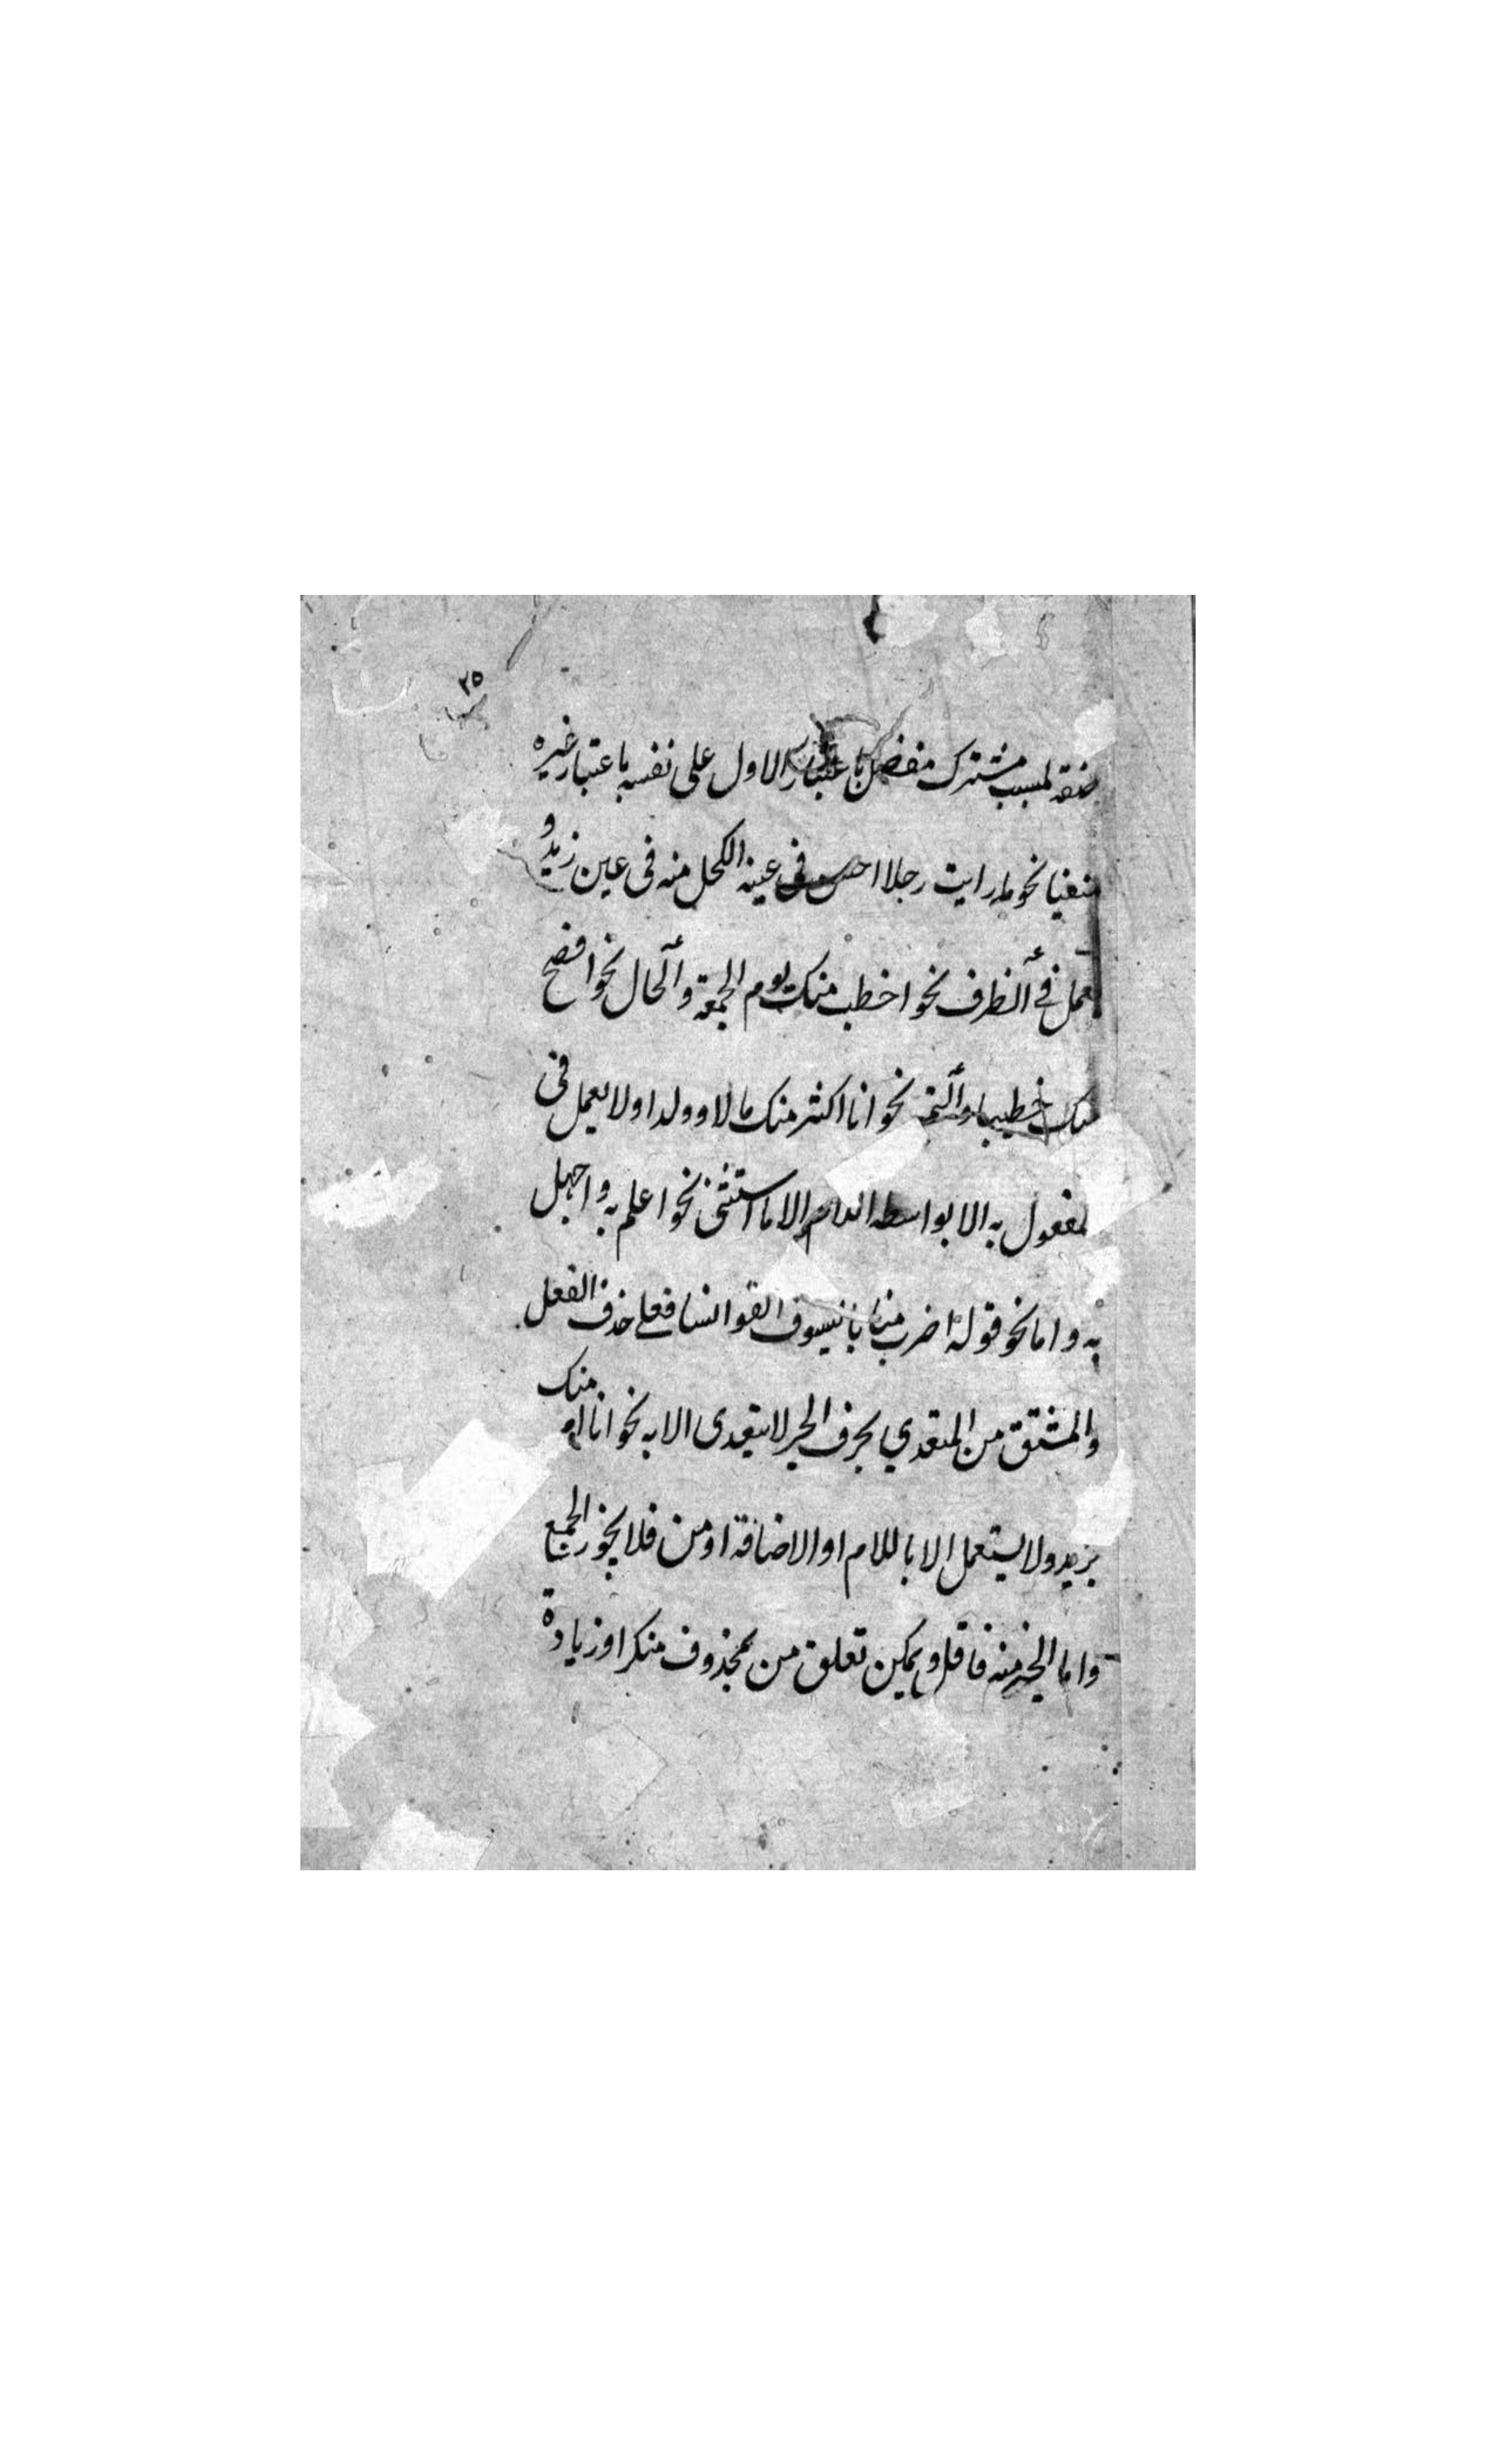 ٢٥
صفة لمسبب مشترك مفضل باعتبار الاول على نفسه باعتبار غيره
منفيا نحو ما رايت رجلا احسن فى عينه الكحل منه فى عين زيد و
يعمل فى الظرف نحو اخطب منك يوم الجمعة والحال نحو افصح
منك خطيبا والتمـ نحو انا اكثر منك مالا وولدا ولا يعمل فى
لمفعول به الا بواسطة اللام الا ما استثنى نحو اعلم به واجهل
به واما نحو قوله اضرب منا بالسيوف القوانسا فعلى حذف الفعل
والمشتق من المتعدي بحرف الجر لا يتعدى الا به نحو انا امر منك
بزيد ولا يستعمل الا باللام او الاضافة او من فلا يجوز الجمع
واما الخير منه فاقل ويمكن تعلق من بمحذوف منكرا وزيادة